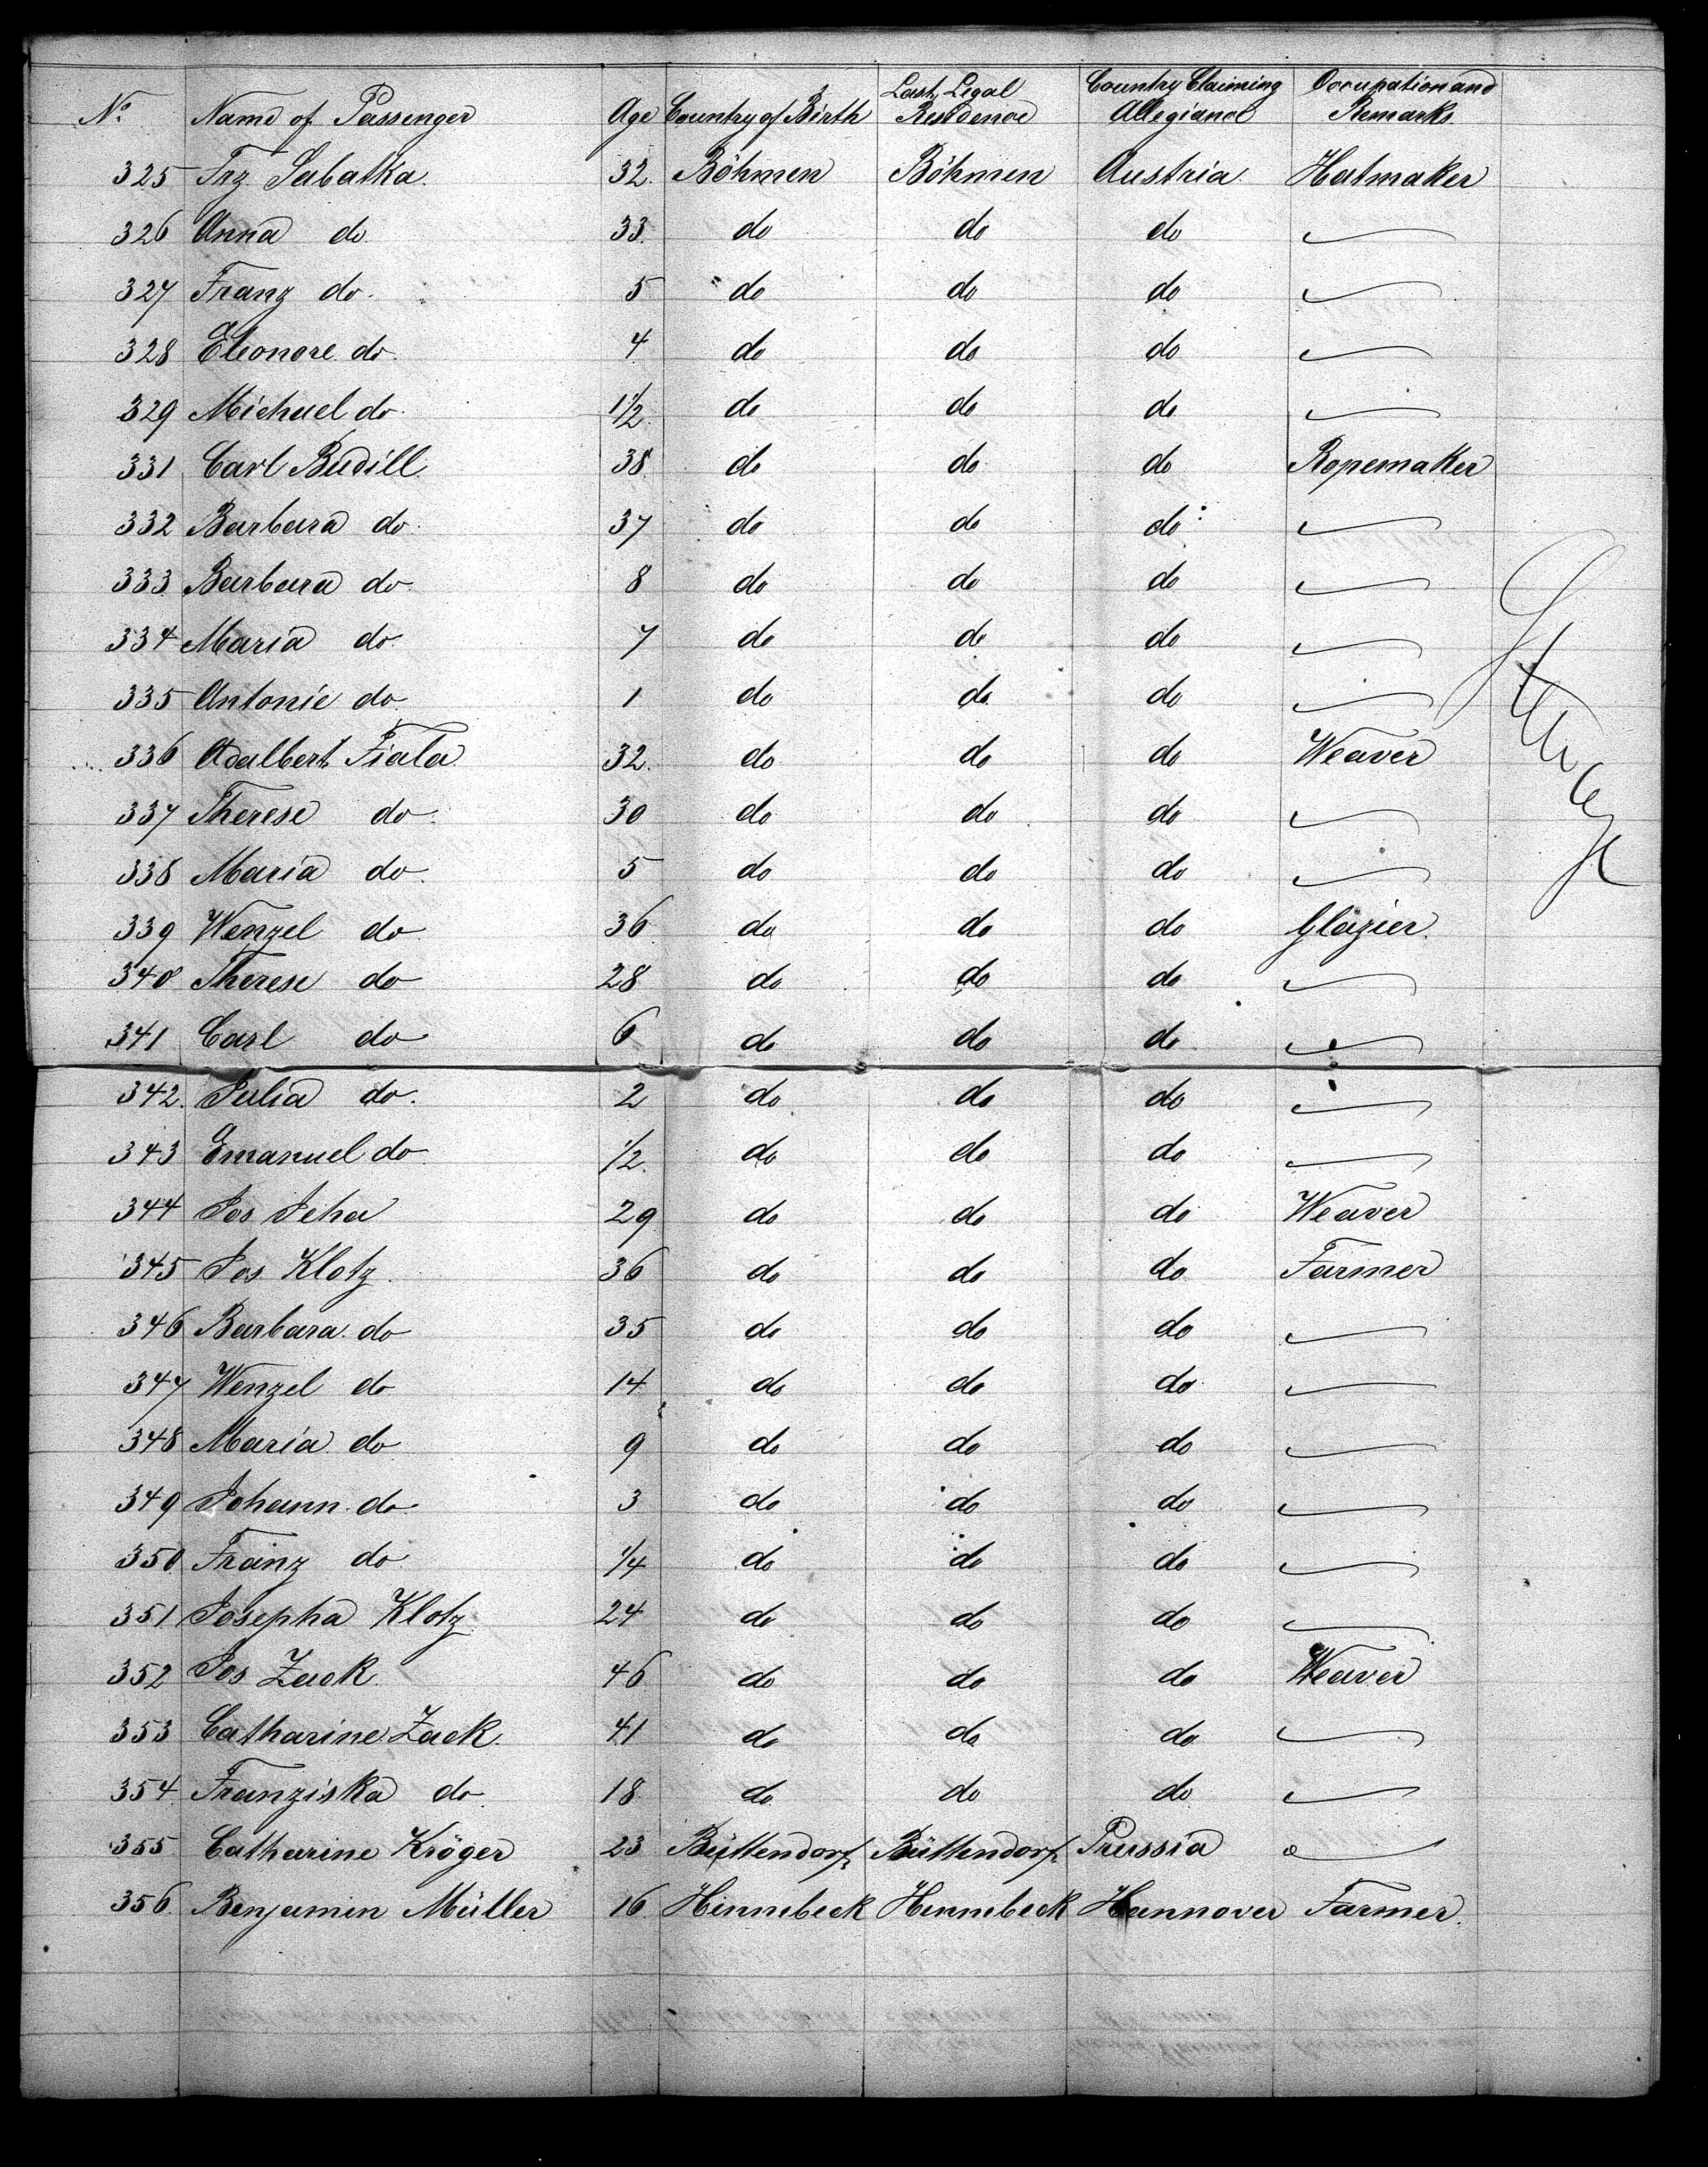 No. Name of Passenger Age Country of Birth Last Legal Residence Country Claiming Allegiance Occupation and Remarks
325 Frz Sabatka. 32. Böhmen Böhmen Austria Hatmaker
326 Anna do 33. do do do
327 Franz do. 5 do do do
328 Eleonore do. 4 do do do
329 Michael do. 1 1/2. do do do
331 Carl Budill. 38. do do do Ropemaker
332 Barbara do. 37 do do do
333 Barbara do. 8 do do do
334 Maria do. 7 do do do
335 Antonie do. 1 do do do
336 Adalbert Fiala 32. do do do Weaver
337 Therese do. 30 do do do
338 Maria do. 5 do do do
339 Wenzel do. 36 do do do Glazier.
340 Therese do 28 do do do
341 Carl do 6 do do do
342. Julia do. 2 do do do
343 Emanuel do 1/2. do do do
344 Jos. Jeha 29 do do do Weaver
345 Jos Klotz. 36 do do do Farmer
346 Barbara. do 35 do do do
347 Wenzel do 14 do do do
348 Maria do 9 do do do
349 Johann. do. 3 do do do
350 Franz do 1/4 do do do
351 Josepha Klotz. 24 do do do
352 Jos Zack. 46 do do do Weaver
353 Catharine Zack. 41 do do do
354. Franziska do 18 do do do
355. Catharine Kröger 23 Büttendorf Büttendorf Prussia
356. Benjamin Müller 16 Hinnebeck Hinnebeck Hannover Farmer.